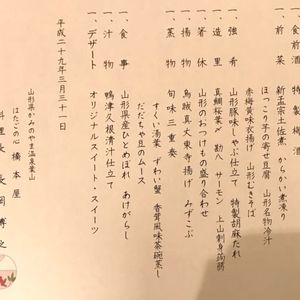 一、食前酒　特製酒
一、前菜　新玉宗土佐煮　からかい煮凍り
ほっこり芋の寄せ豆腐　山形名物冷汁
赤梅黄味衣揚げ　山形むきそば
一、強肴　山形豚味しゃぶ仕立て　特製胡麻たれ
一、造里　真鯛桜葉〆　勘八　サーモン　上山刺身蒟蒻
一、箸休　山形のおつけもの盛り合わせ
一、揚物　烏賊真丈東寺揚げ　みずこぶ
一、蒸物　旬味三重奏
すくい湯葉　ずわい蟹　香茸風味茶碗蒸し
だだちゃ豆のムース
一、食事　山形県産ひとめぼれ　あけがらし
一、汁物　鴨津久根清汁仕立て
一、デザート　オリジナルスイート・スイーツ
平成二十九年三月三十一日
山形県かみのやま温泉葉山
はたごの心　橋本屋
料理長　長岡博之